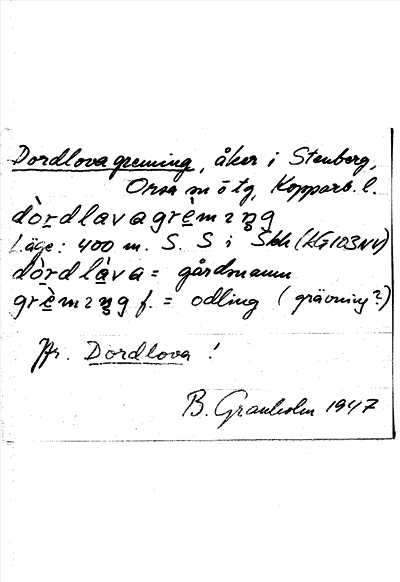 Dordlovagreming, åker i Stenberg,
Orsa m ö tg, Kopparb. l.
dòrdlavagrèmıŋg
Läge: 400 m. S. S i Skh (KG103NV)
dòrdlàva = gårdsnamn
grèmıŋg f. = odling (grävning?)
Jfr. Dordlova !
B. Granholm 1947